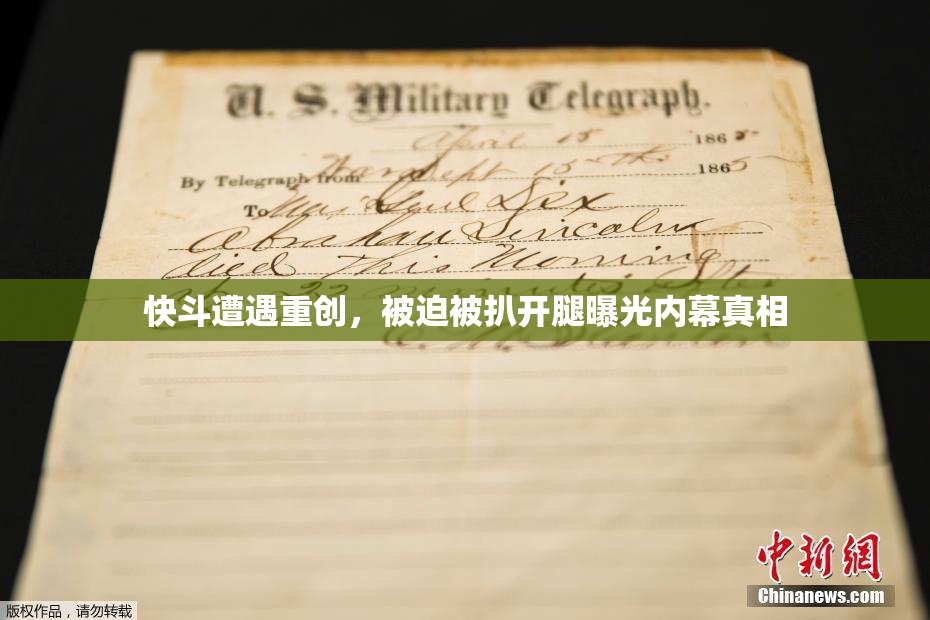 U. S. Military Telegraph.
April 15 1865
By Telegraph from War Dept 15th 1865
To Maj Genl Dix
Abraham Lincoln
died This Morning
22 minutes after
快斗遭遇重创，被迫被扒开腿曝光内幕真相
中新網
Chinanews.com
版权作品，请勿转载